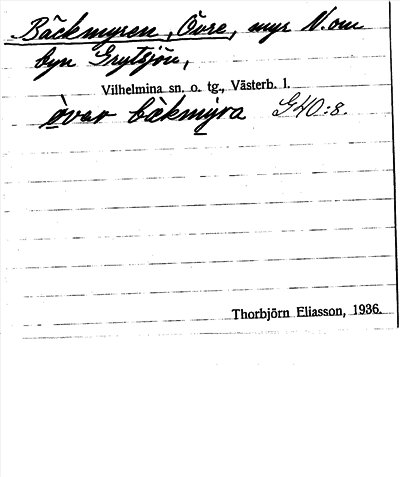 Bäckmyren, Övre, myr N. om
byn Grytsjön,
Vilhelmina sn. o. tg., Västerb. l.
övar bäkmyra G40:8.
Thorbjörn Eliasson, 1936.